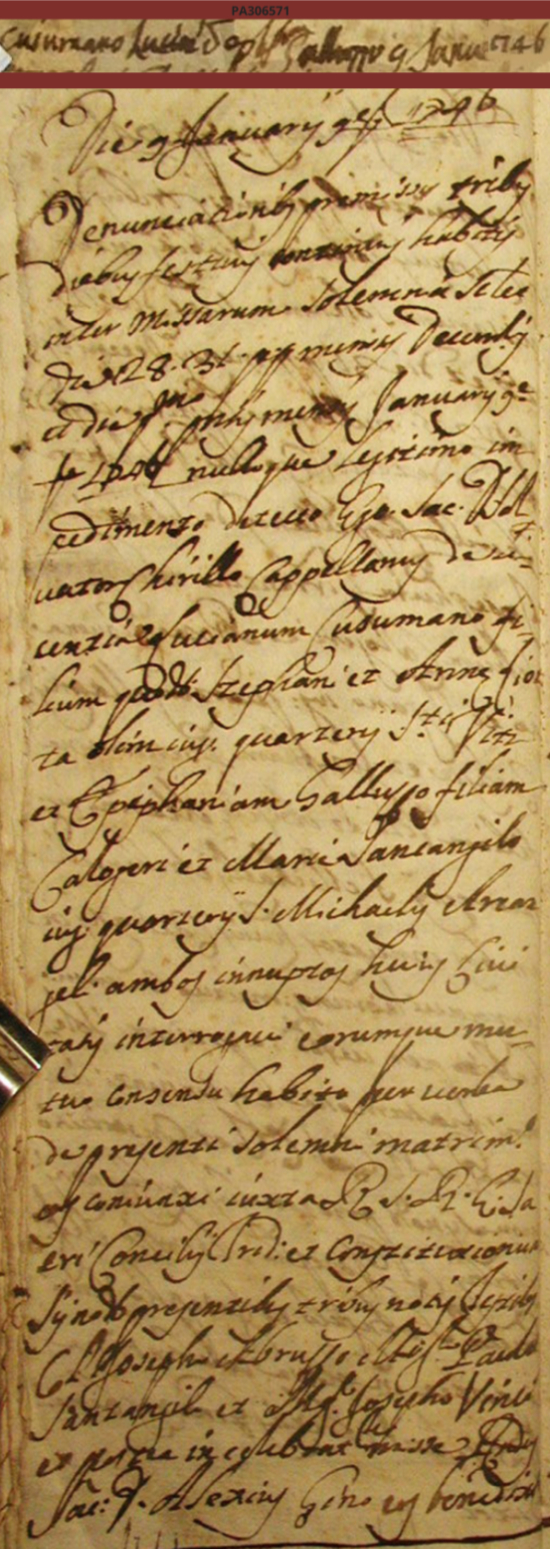 PA306571
Cusumano Lucian d Epiph. Gallusso 9 Janu 1746
Die 9 Januarij 9e Ind. 1746
Denunciationibus premissis tribus
diebus festivis continuis habitis
inter Missarum solemnia scilicet
die 28. 31. pp. mensis Decembris
et die pmo mensis Januarij 9e
1746 nulloque legitimo im
pedimento detecto Ego Sac. D. Sal
vator Chirillo Cappellanus de li
centia Lucianum Cusumano fi
lium qdd. Stephani et Anne Fior
ta olim iug. quarterij Sti Viti
et Epiphaniam Gallusso filiam
Calogeri et Marie Santangilo
iug. quarterij S. Michaelis Arcan
gel. ambos innuptos huius Civi
tatis interrogavi eorumque mu
tuo consensu habito per verba
de presenti solemni matrim.
os coniunxi iuxta R. S. R. E. Sa
cri Concilij Trid. et Constitutionum
Synod. presentibus tribus notis testibus
Cl. Joseph Abrusso Mgro Paulo
Santangilo et Mg. Josepho Vinci
et postea in celebrat. misse
Sac. D. Alexius Gino eos benedixit